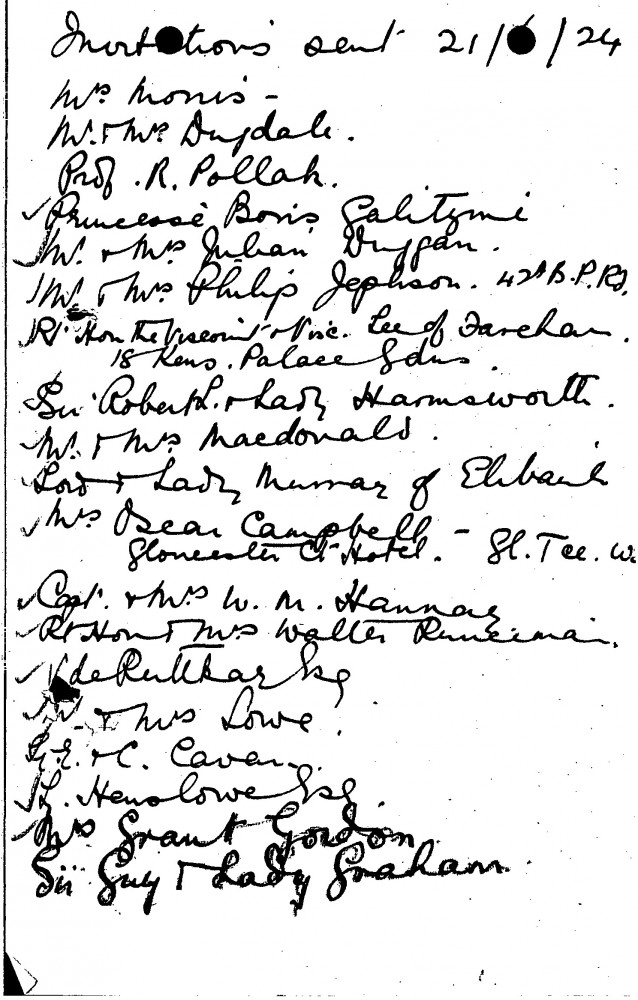 Invitations sent 21/6/24
Mrs Morris -
Mr. & Mrs Dugdale.
Prof. R. Pollak.
Princesse Boris Galitzine
Mr. & Mrs Julian Duggan.
Mr & Mrs Philip Jephson. 42A B.P. Rd.
Rt. Hon the Viscount & Visc. Lee of Fareham.
18 Kens. Palace Gdns.
Sir Robert L. & Lady Harmsworth.
Mr. & Mrs Macdonald.
Lord & Lady Murray of Elibank
Mrs Oscar Campbell -
Gloucester Ct Hotel. - Gl. Tce. W2
Capt. & Mrs W. M. Hannay
Rt Hon & Mrs Walter Runciman.
de Ruttkay Esq
& Mrs Lowe.
& C. Cavan.
Henslowe Esq
Mrs Grant Gordon
Sir Guy & Lady Graham